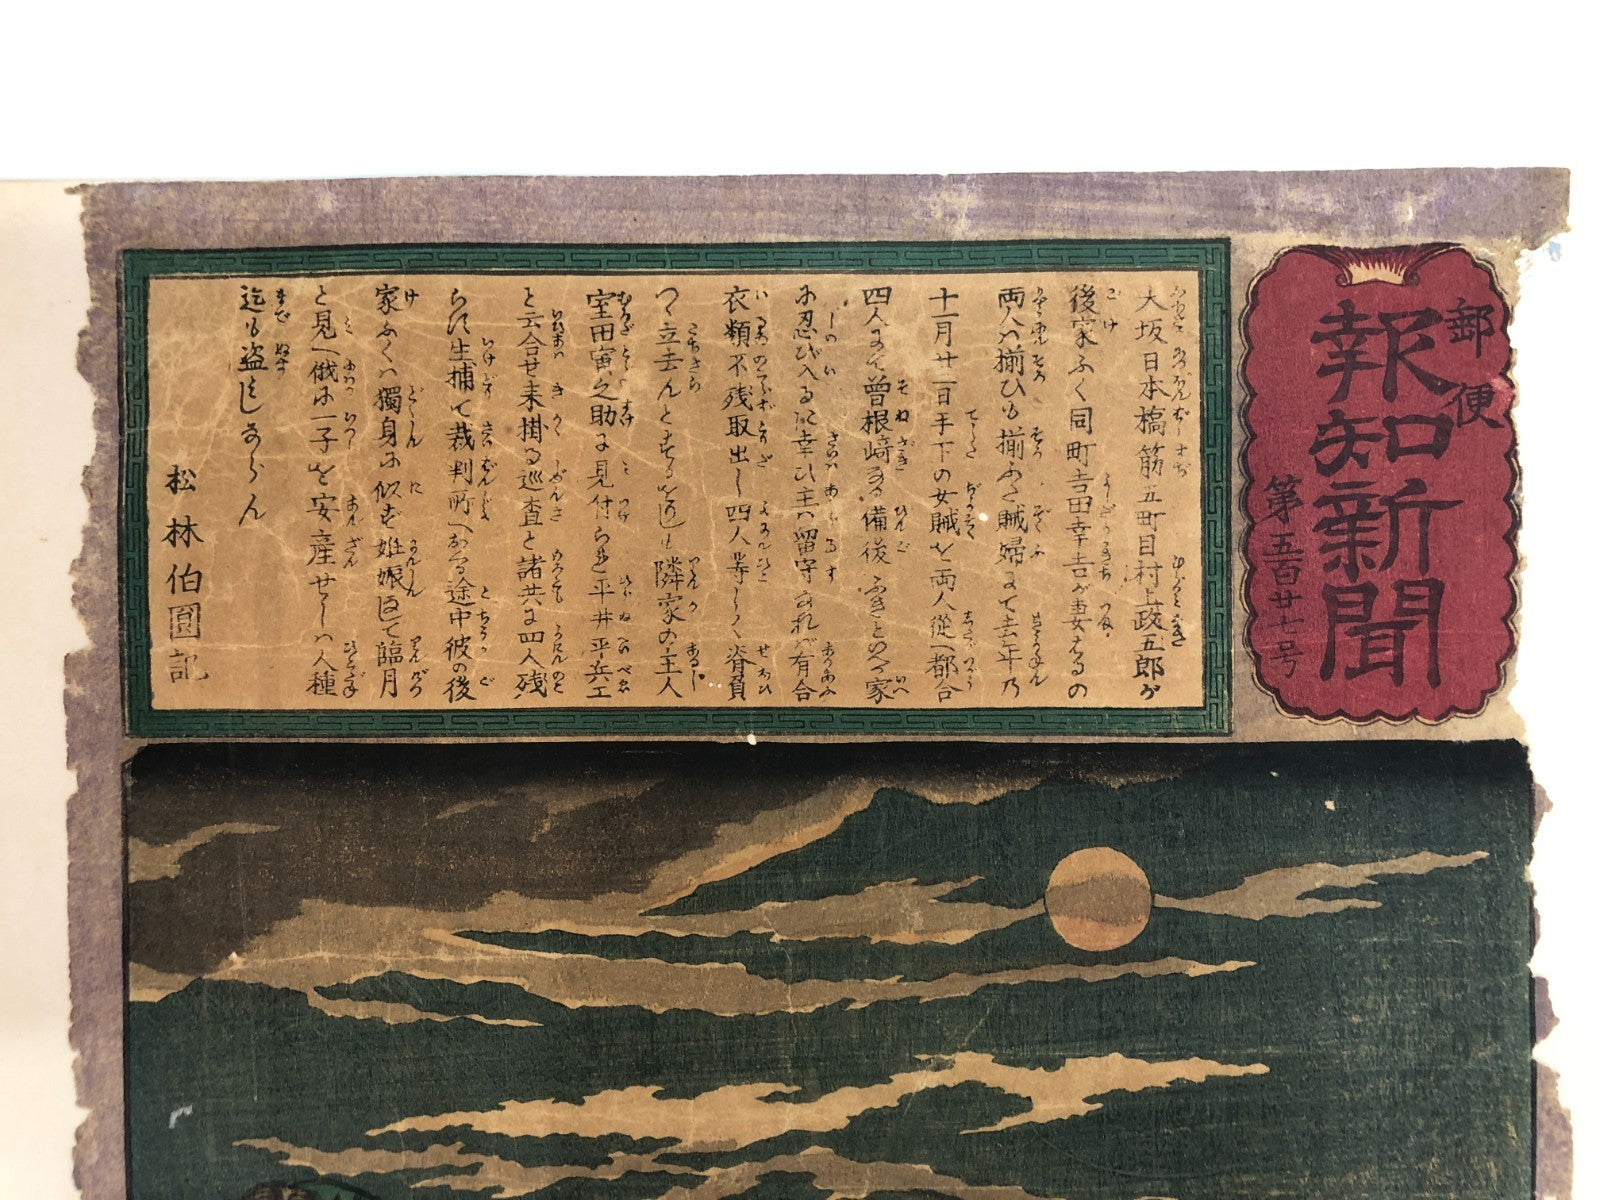 郵便
報知新聞
第五百廿七号
大坂日本橋筋五町目村上政五郎が
後家ふく同町吉田幸吉が妻はるの
両人ハ揃ひも揃ふた賊婦にて去年乃
十二月廿一日手下の女賊を両人従へ都合
四人にて曽根崎なる備後ふきといふ家
に忍び入るに幸ひ主ハ留守なれバ有合
衣類不残取出し四人等しく脊負
つゝ立去んとするを近き隣家の主人
室田寅之助に見付られ平井平兵エ
と云合せ来掛る巡査と諸共に四人残
らず生捕て裁判所へおくる途中彼の後
家ふくハ獨身に似ず姙娠にて臨月
と見へ俄に一子を安産せしハ人種
迄も盗みしならん
松林伯圓記